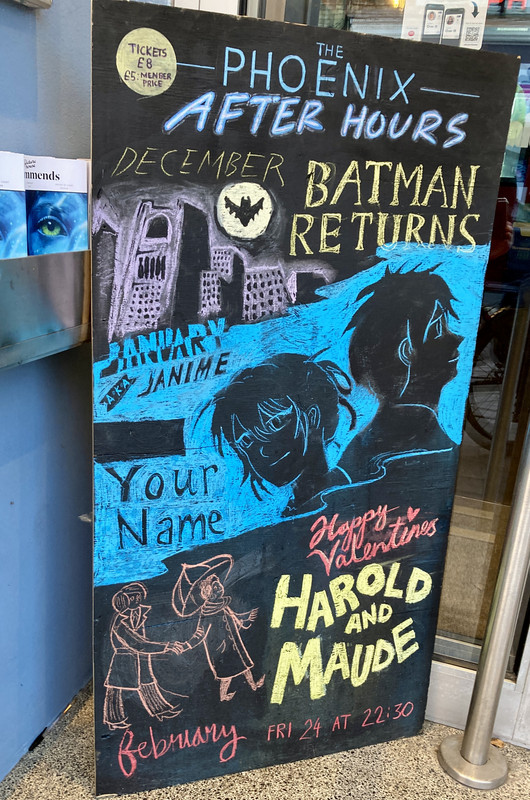 TICKETS
£8
£5: MEMBER
PRICE
THE
PHOENIX
AFTER HOURS
DECEMBER
BATMAN
RETURNS
JANUARY
AKA JANIME
Your
Name
Happy
Valentines
HAROLD
AND
MAUDE
february
FRI 24 AT 22:30
mmends